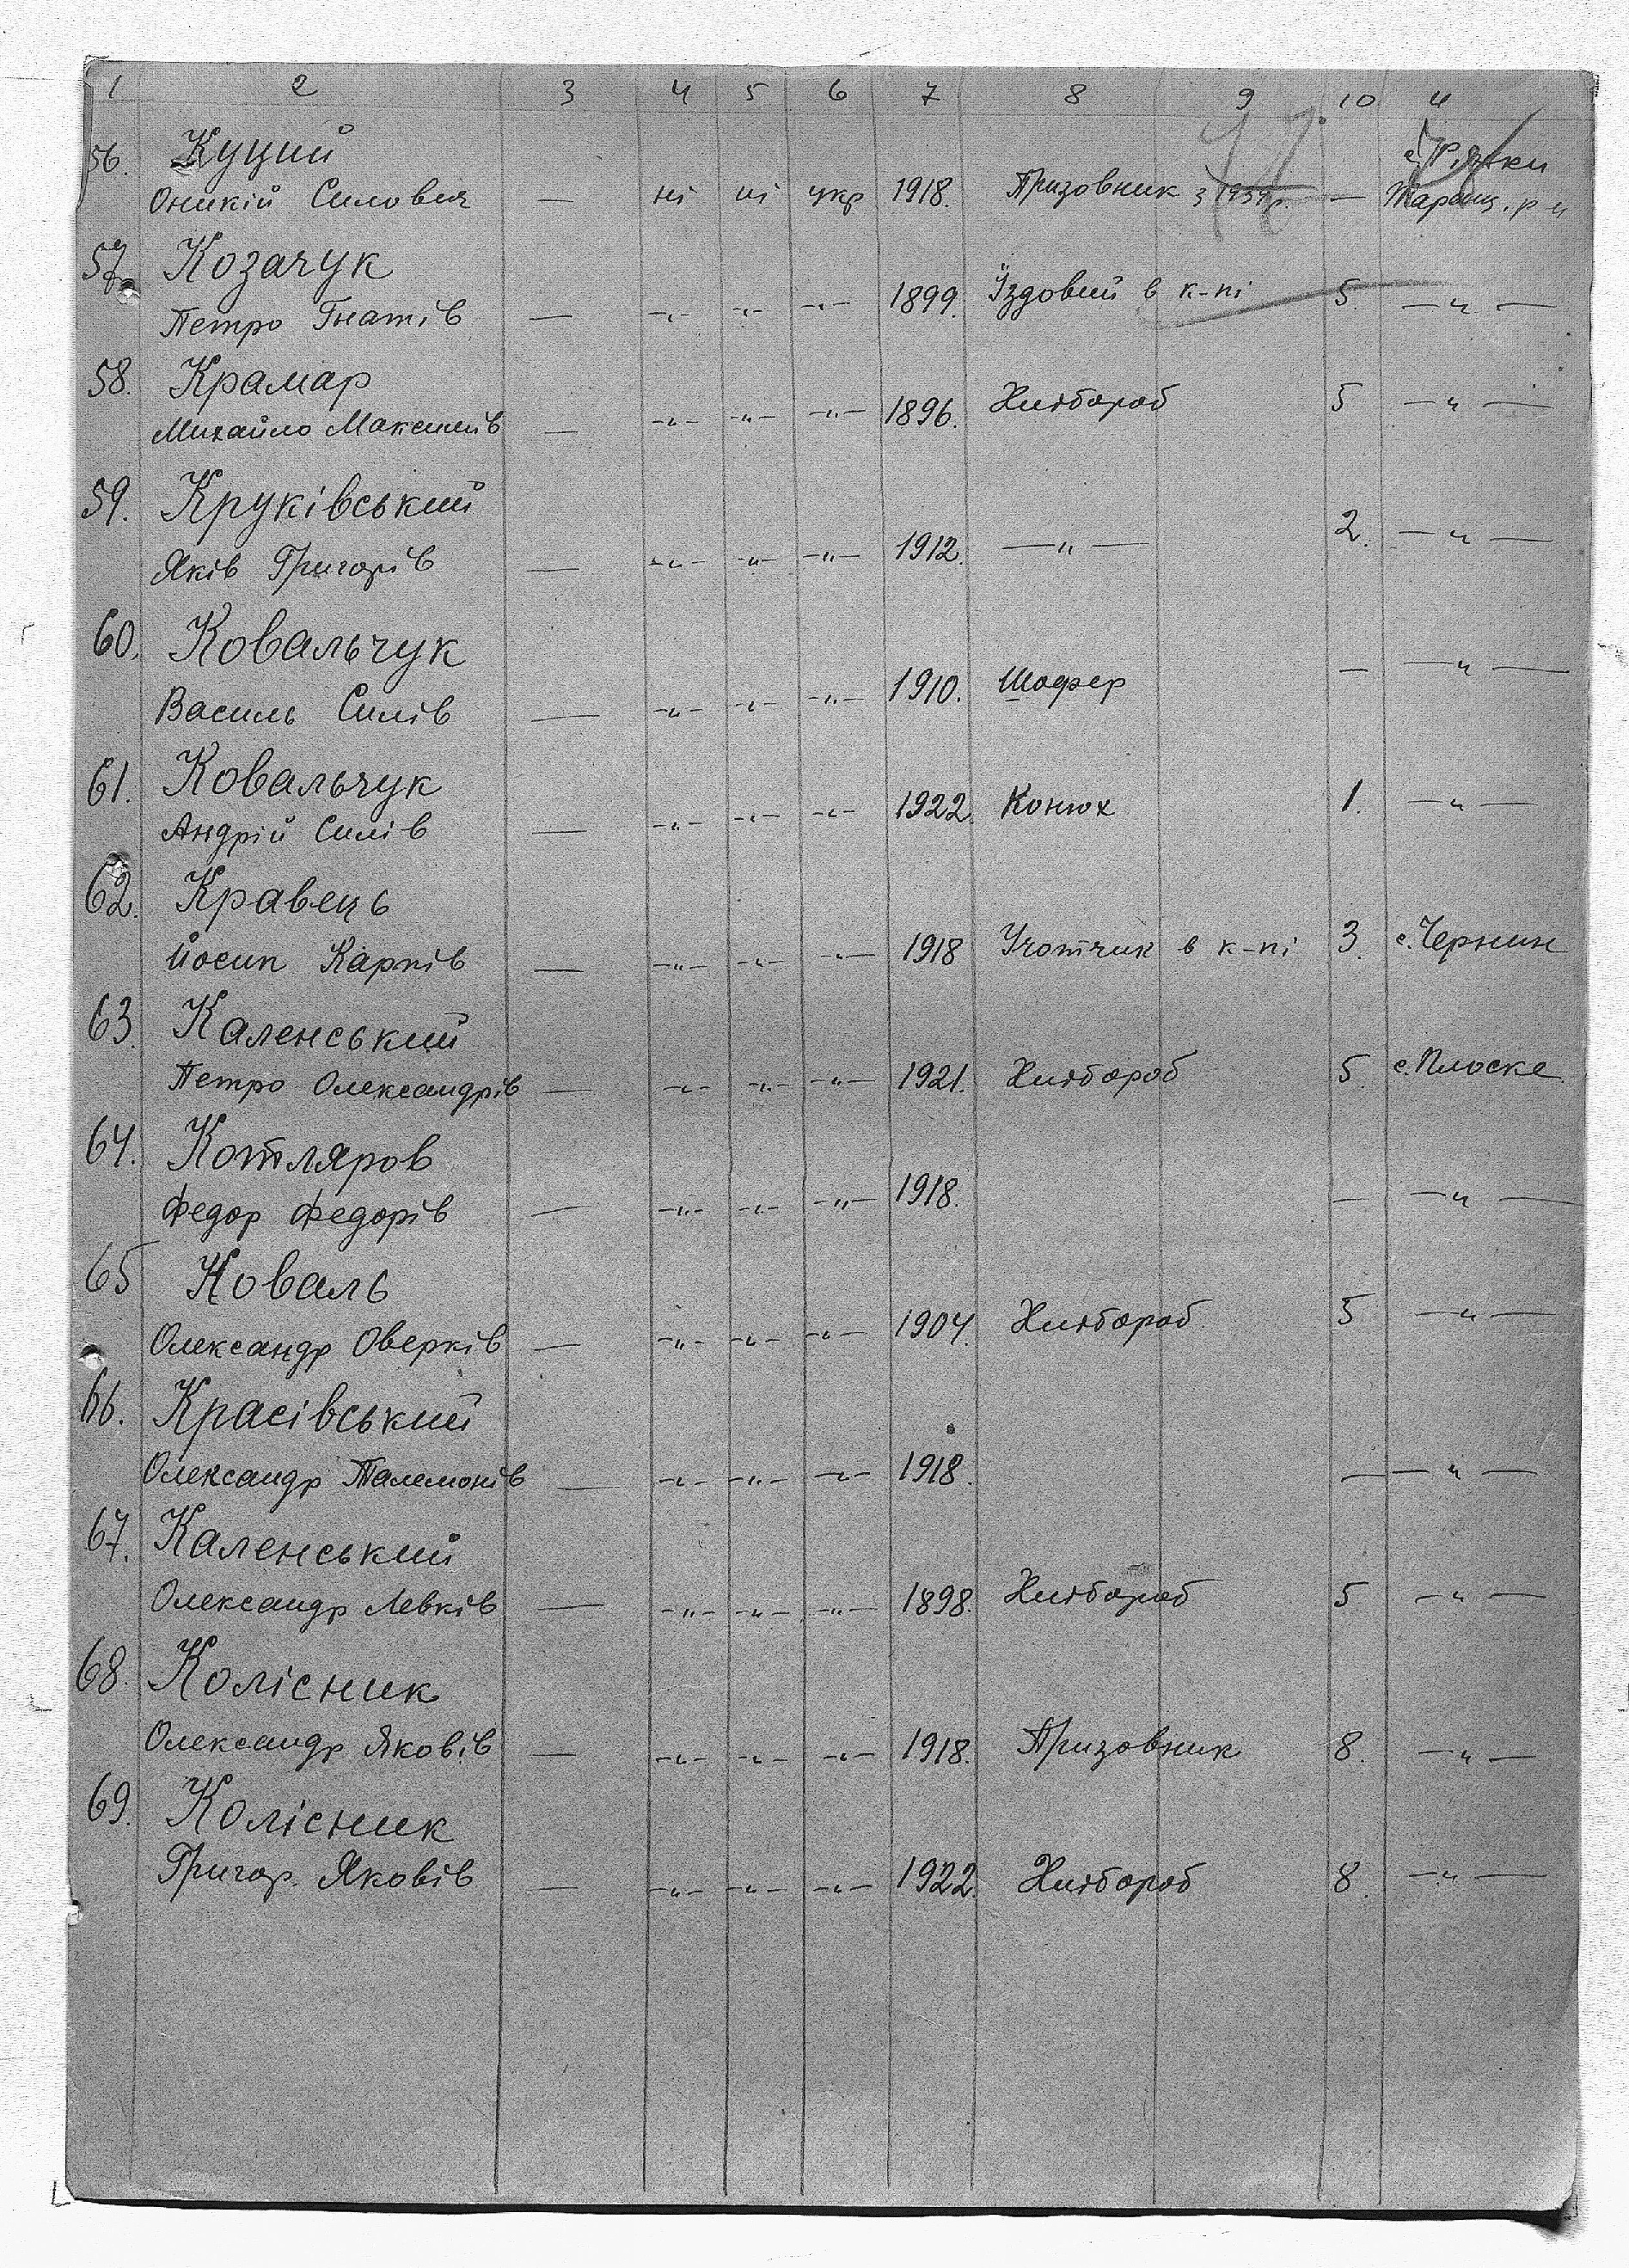 1 2 3 4 5 6 7 8 9 10 11
56. Куций
Оникій Силович — ні ні укр 1918. Призовник з 1939р. — с. Ряжки Таращ. р-н
57. Козачук
Петро Гнатів — -"- -"- -"- 1899. Їздовий в к-пі 5. — " —
58. Крамар
Михайло Максимів — -"- -"- -"- 1896. Хлібороб 5 — " —
59. Круківський
Яків Григорів — -"- -"- -"- 1912. — " — 2. — " —
60. Ковальчук
Василь Силів — -"- -"- -"- 1910. Шофер — — " —
61. Ковальчук
Андрій Силів — -"- -"- -"- 1922. Конюх 1. — " —
62. Кравець
Йосип Карпів — -"- -"- -"- 1918 Учотчик в к-пі 3. с. Чернин
63. Каленський
Петро Олександрів — -"- -"- -"- 1921. Хлібороб 5. с. Плоске.
64. Котляров
Федор Федорів — -"- -"- -"- 1918. — — " —
65 Коваль
Олександр Оверків — -"- -"- -"- 1904. Хлібороб 5 — " —
66. Красівський
Олександр Палемонів — -"- -"- -"- 1918. — — " —
67. Каленський
Олександр Левків — -"- -"- -"- 1898. Хлібороб 5 — " —
68. Колісник
Олександр Яковів — -"- -"- -"- 1918. Призовник 8. — " —
69. Колісник
Григор. Яковів — -"- -"- -"- 1922. Хлібороб 8. — " —